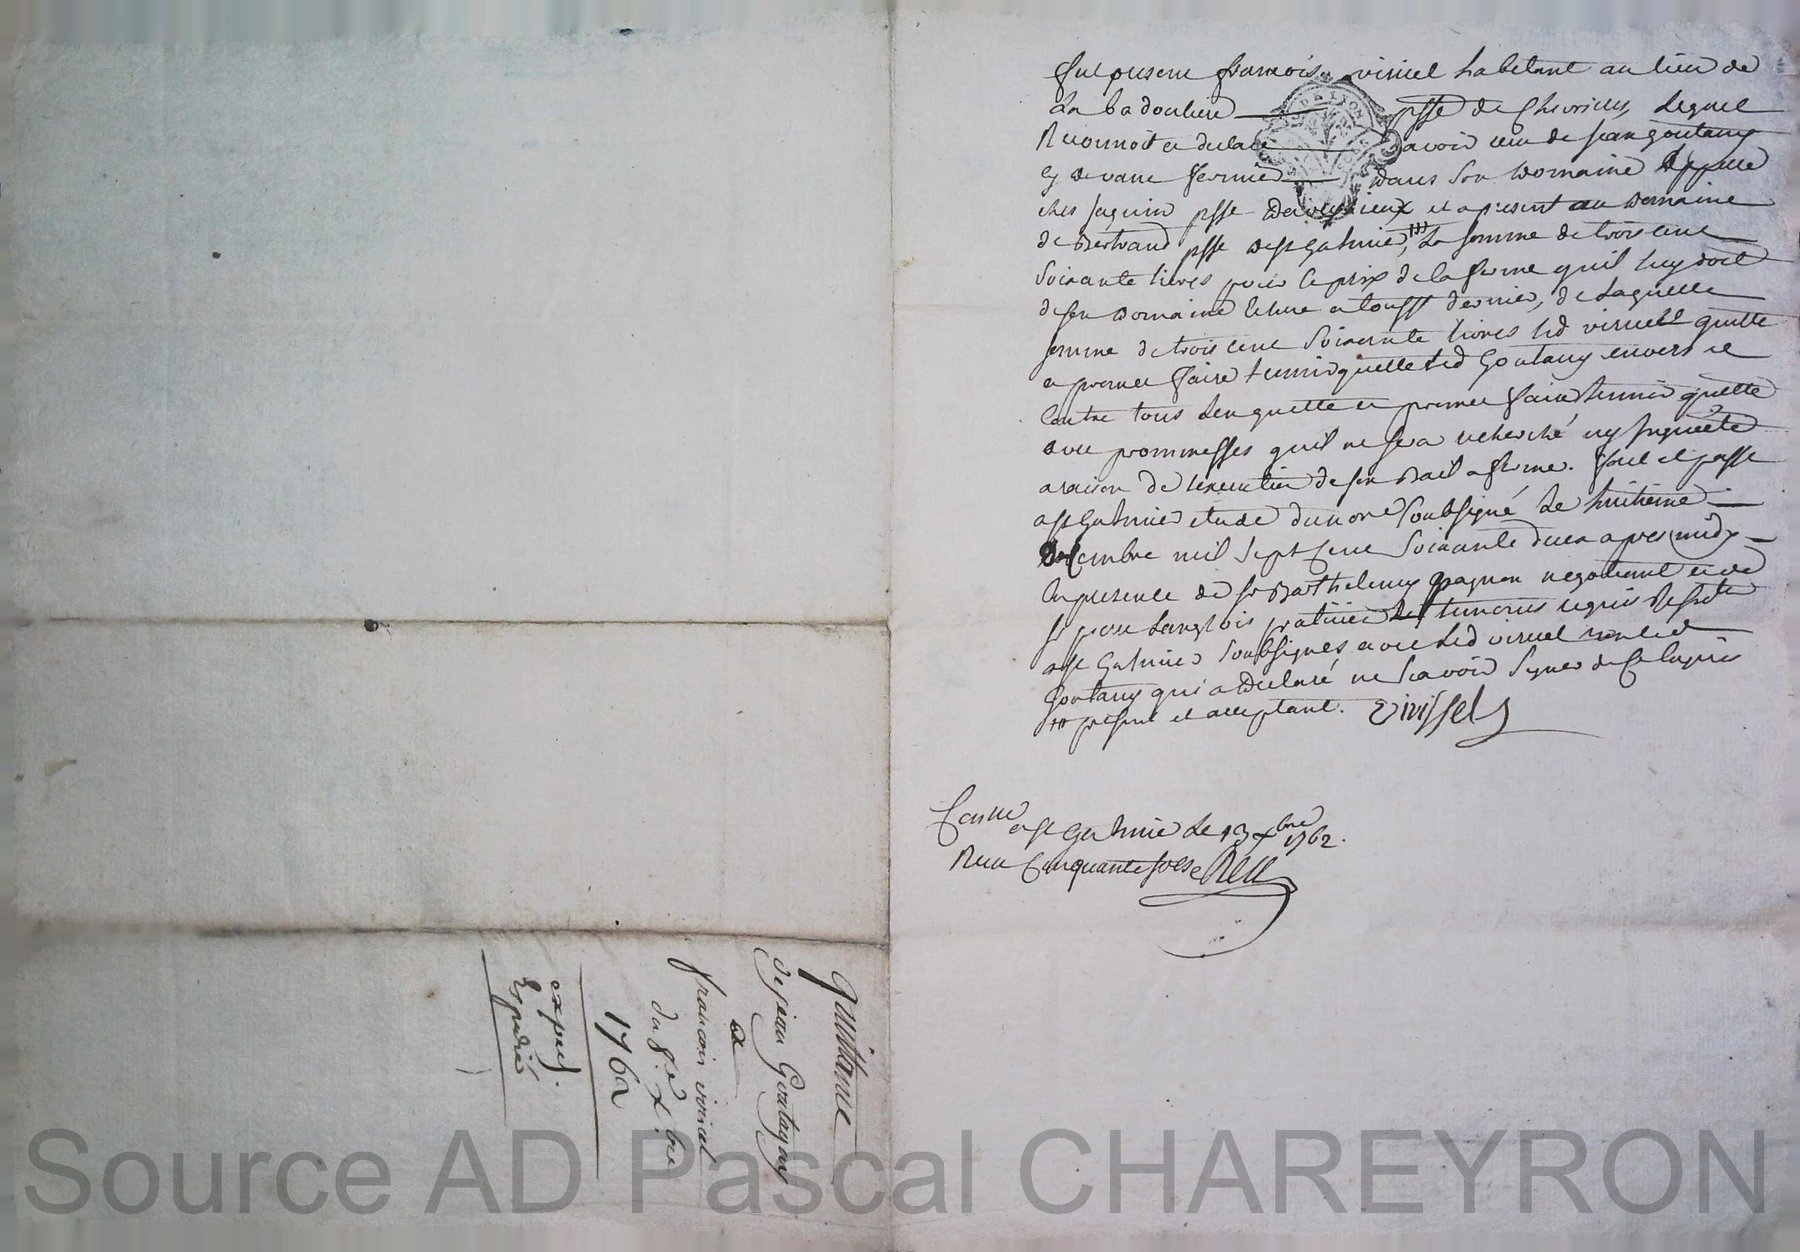 fut present francois viricel habitant au lieu de
La badouliere psse de Chevrieres, Lequel
Reconnoit et declare avoir reçu de jean goutany
cy devant fermier dans son domaine appellé
ches jaquin psse et apresent au domaine
de Bertrand psse de st Galmier, la somme de trois cent
soixante livres pour le prix de la ferme qu'il luy doit
de son domaine echue a touss dernier, de Laquelle
somme de trois cent soixante livres led viricel quitte
et promet faire tenir quitte led Goutany envers et
Contre tous L'en quitte et promet faire tenir quitte
avec prommesses quil ne sera recherché ny Inquieté
a raison de l'execution de son Bail a ferme. fait et passé
a st Galmier etude du nore soubsigné Le huitieme
Decembre mil sept Cent soixante deux apres midy
En presence de sr Barthelemy pagnon negotiant et de
sr pierre Langlois praticien temoins requis
a st Galmier soubsignés avec Led viricel non led
Goutany qui a declaré ne scavoir signer de Ce Enquis
present et acceptant. Virissel
Conné a st Galmier Le 13 xbre 1762.
Reçu Cinquante sols
quittance
de jean Goutagny
a
francois viricel
du 8e xbre
1762
expedié
Source AD Pascal CHAREYRON